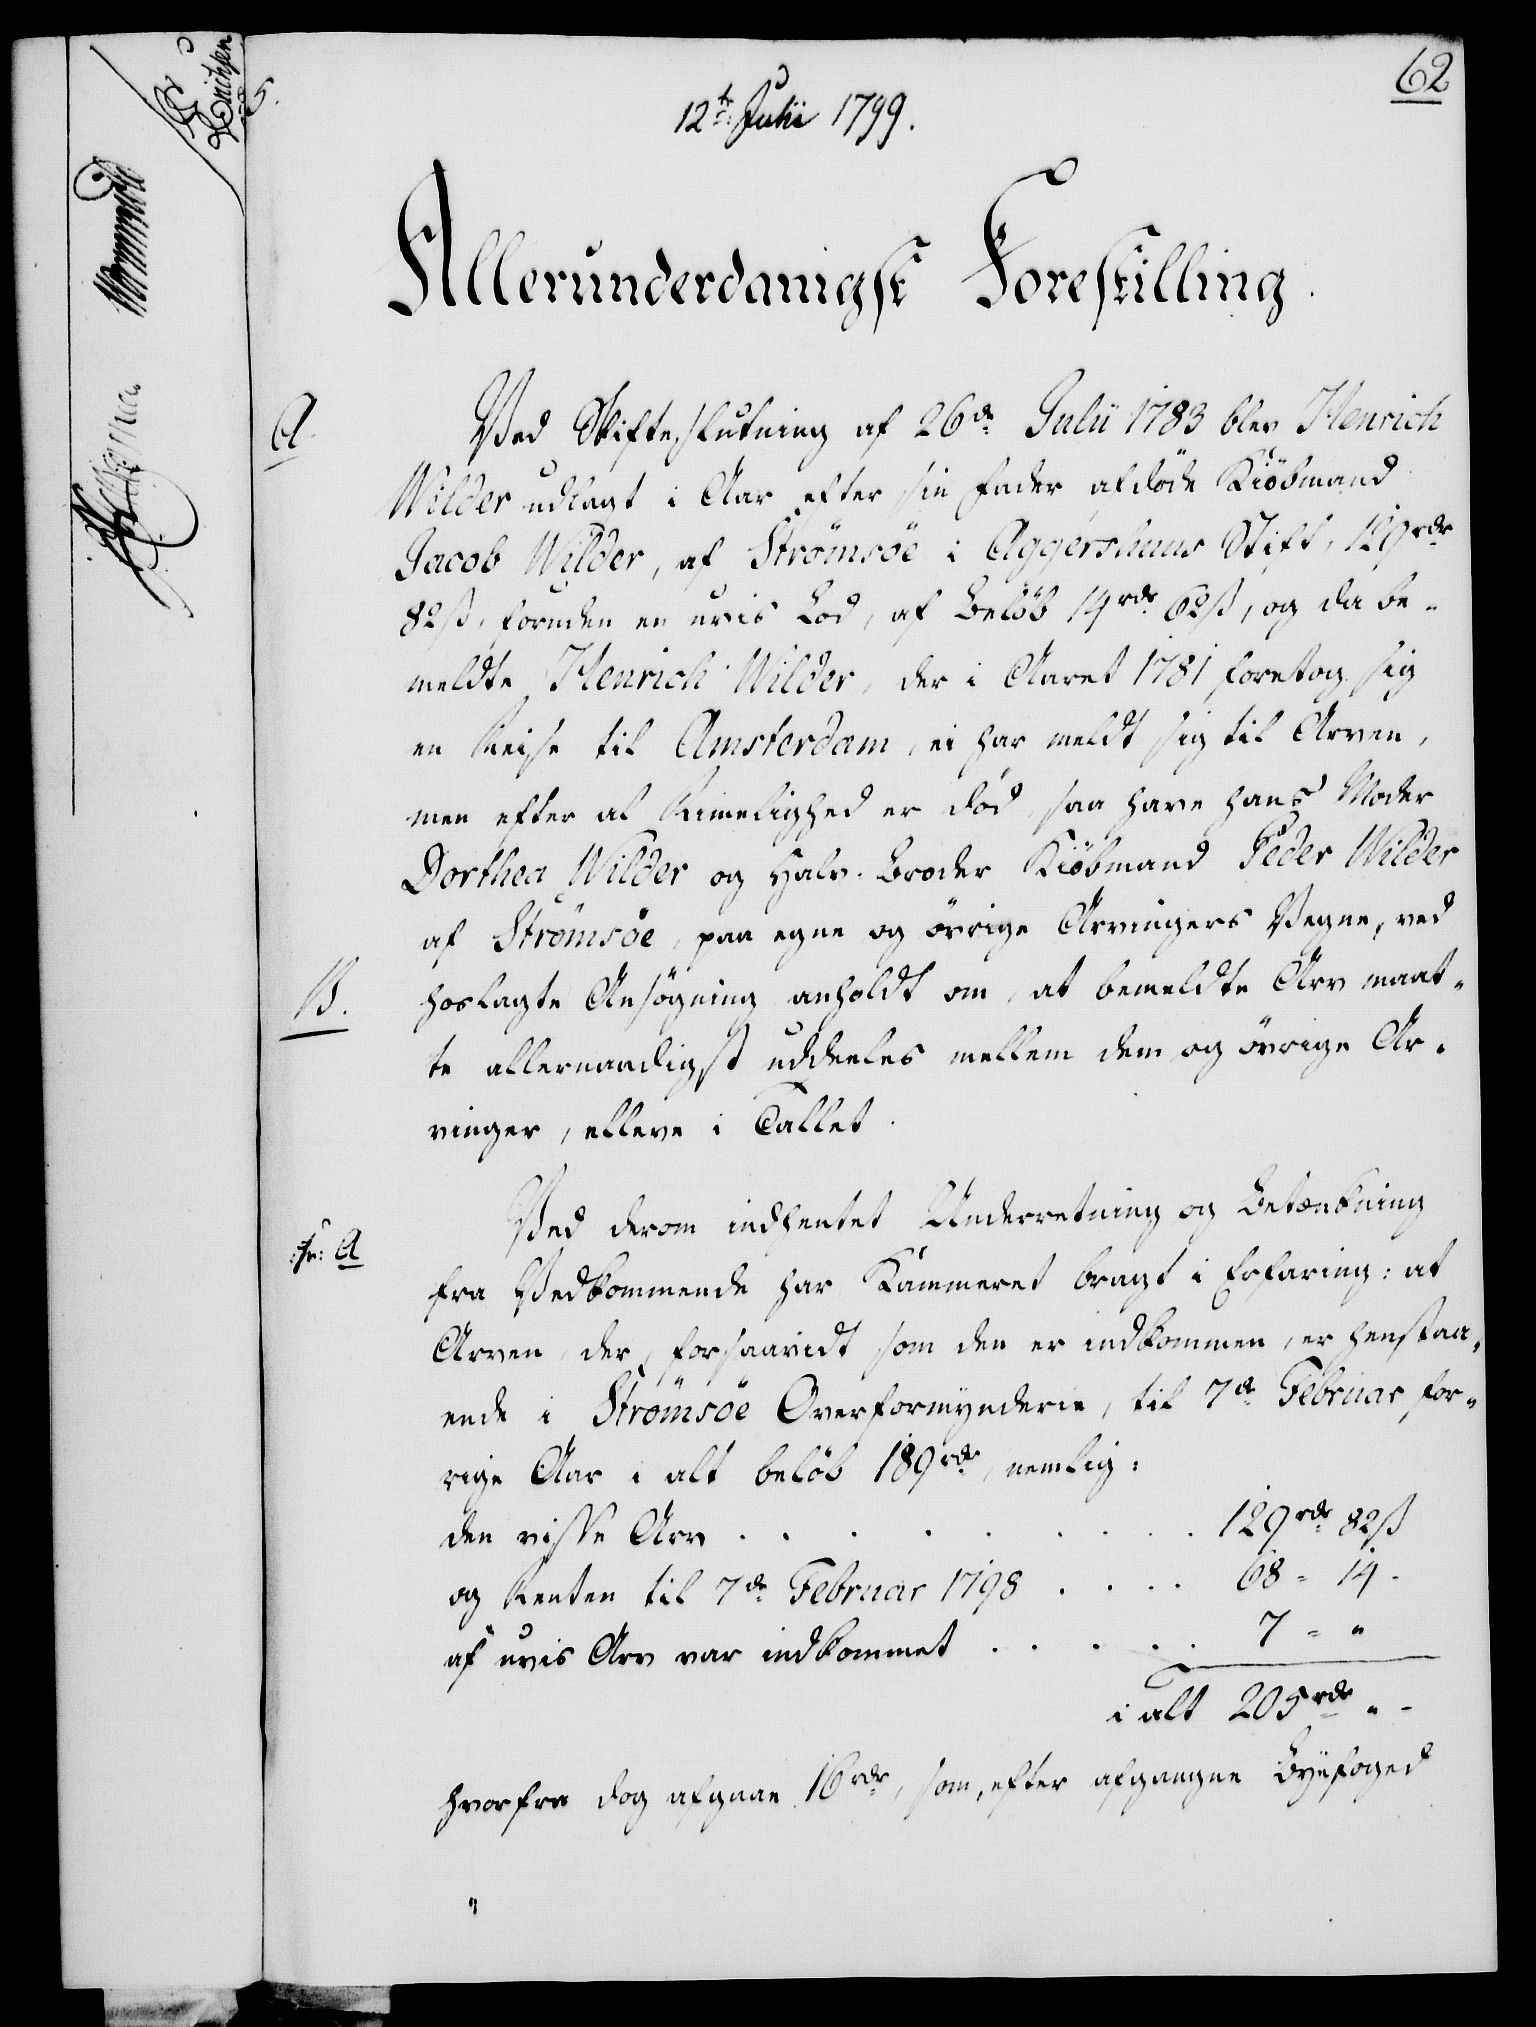 62
12te Julii 1799.
Allerunderdanigst Forestilling.
A.
Ved Skifte-slutning af 26de Julii 1783 blev Henrich
Wilder udlagt i Arv efter sin Fader afdøde Kiöbmand
Jacob Wilder, af Strömsöe i Aggershuus Stift, 129rdr
82ß, foruden en uvis Lod, af Belöb 14rdr 62ß, og da be-
meldte Henrich Wilder, der i Aaret 1781 foretog sig
en Reise til Amsterdam, ei har meldt sig til Arven,
men efter al Rimelighed er död, saa have hans Moder
Dorthea Wilder og Halv-Broder Kiöbmand Peder Wilder
af Strömsöe, paa egne og övrige Arvingers Vegne, ved
B.
hoslagte Ansögning anholdt om, at bemeldte Arv maat-
te allernaadigst uddeeles mellem dem og övrige Ar-
vinger, elleve i Tallet.
Ved derom indhentet Underretning og Betænkning
A
fra Vedkommende har Kammeret bragt i Erfaring: at
Arven, der, forsaavidt som den er indkommen, er henstaa-
ende i Strömsöe Overformynderie, til 7de Februar for-
rige Aar i alt belöb 189rdr, nemlig:
den visse Arv . . . . . . . 129rdr 82ß
og Renten til 7de Februar 1798 . . . . 68 - 14 -
af uvis Arv var indkommet . . . . . 7 - "
i alt 205rdr " -
hvorfra dog afgaae 16rdr, som, efter afgangne Byefoged